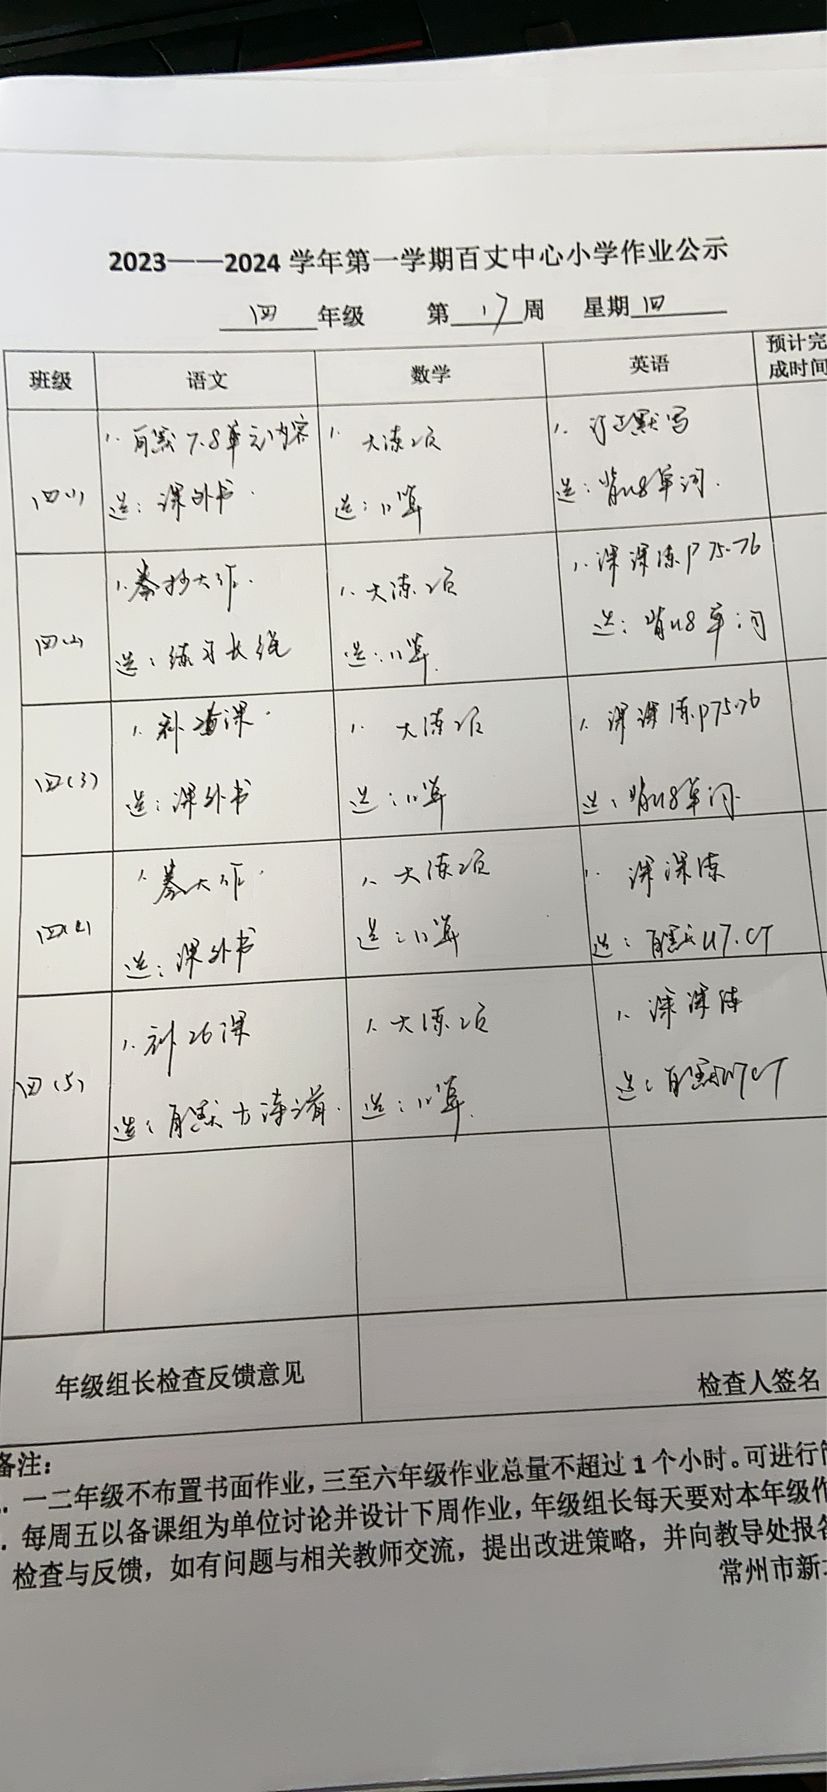 2023——2024 学年第一学期百丈中心小学作业公示
四 年级 第 17 周 星期 四
班级 语文 数学 英语 预计完
成时间
四(1) 1. 自默7.8单元内容 1. 大练2页 1. 订正默写
选：课外书. 选：口算 选：背U8单词.
1. 大作. 1. 大练2页 1. 课课练P75-76
选：练习长绳 选：口算. 选：背U8单词
四(3) 1. 补课. 1. 大练2页 1. 课课练P75-76
选：课外书 选：口算 选：背U8单词.
四(4) 1. 誊大作. 1. 大练2页 1. 课课练
选：课外书 选：口算 选：自默U7.CT
四(5) 1. 补26课 1. 大练2页 1. 课课练
选：自默 选：口算. 选：自默U7CT
年级组长检查反馈意见 检查人签名
备注：
一二年级不布置书面作业，三至六年级作业总量不超过 1 个小时。可进行
每周五以备课组为单位讨论并设计下周作业，年级组长每天要对本年级作
检查与反馈，如有问题与相关教师交流，提出改进策略，并向教导处报备
常州市新北